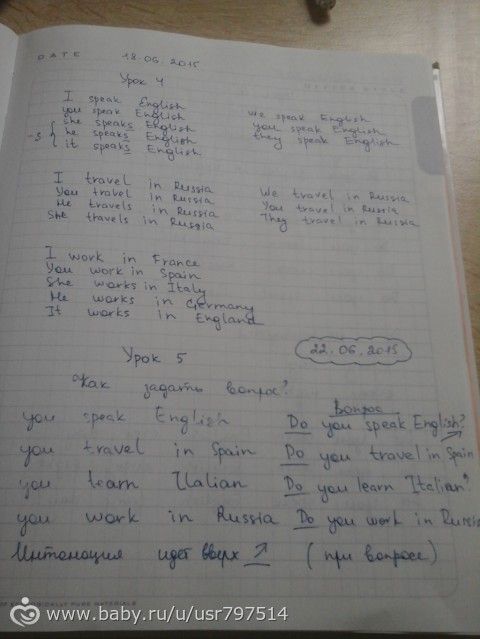 DATE 18.06.2015
Урок 4
I speak English
you speak English we speak English
she speaks English you speak English
-s { he speaks English they speak English
it speaks English
I travel in Russia We travel in Russia
You travel in Russia You travel in Russia
He travels in Russia They travel in Russia
She travels in Russia
I work in France
You work in Spain
She works in Italy
He works in Germany
It works in England
Урок 5 22.06.2015
Как задать вопрос?
Вопрос
you speak English Do you speak English?
you travel in Spain Do you travel in Spain
you learn Italian Do you learn Italian?
you work in Russia Do you work in Russia
Интонация идет вверх ↗ (при вопросе)
www.baby.ru/u/usr797514